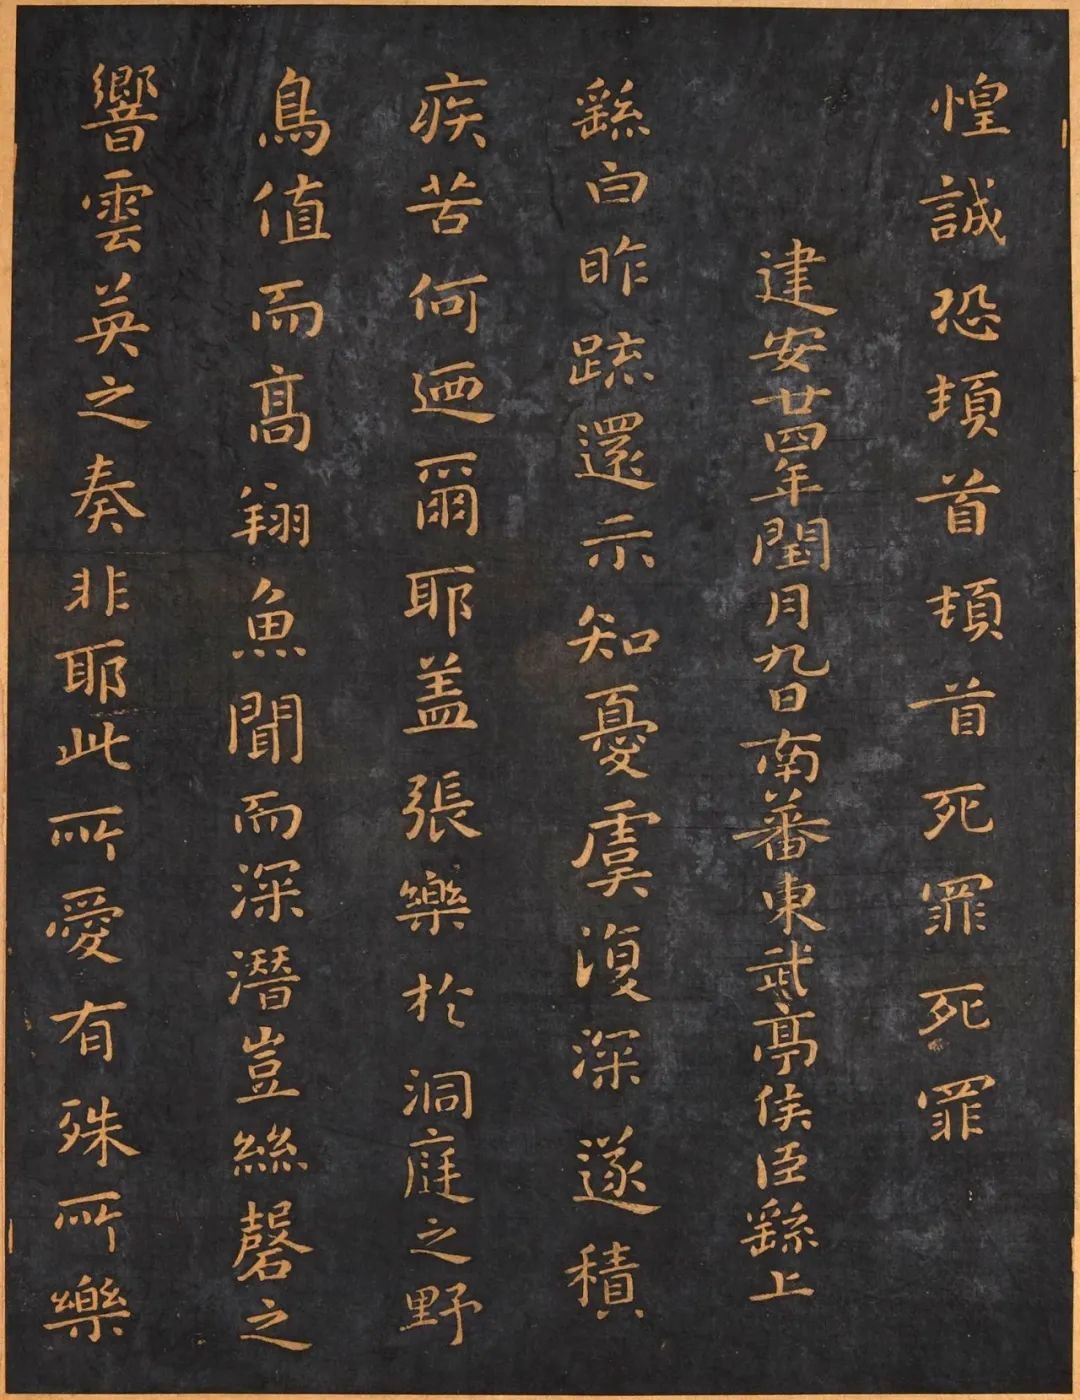 惶誠恐頓首頓首死罪死罪
建安廿四年閏月九日南蕃東武亭侯臣繇上
繇白昨疏還示知憂虞復深遂積
疾苦何迺爾耶蓋張樂於洞庭之野
鳥值而高翔魚聞而深潛豈絲磬之
響雲英之奏非耶此所愛有殊所樂